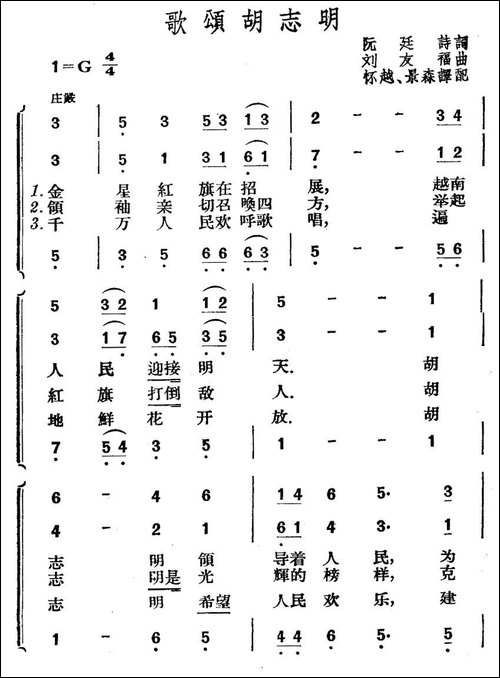 歌頌胡志明
1=G 4/4
阮廷詩詞
刘友福曲
怀越、景森譯配
庄嚴
3 5 3 5 3 1 3 | 2 - - 3 4
3 5 1 3 1 6 1 | 7 - - 1 2
1. 金 星 紅 旗在 招 展, 越南
2. 領 袖 亲 切召 喚四 方, 举起
3. 千 万 人 民欢 呼歌 唱, 遍
5 3 5 6 6 6 3 | 5 - - 5 6
5 3 2 1 1 2 | 5 - - 1
3 1 7 6 5 3 5 | 3 - - 1
人 民 迎接 明 天. 胡
紅 旗 打倒 敌 人. 胡
地 鮮 花 开 放. 胡
7 5 4 3 5 | 1 - - 1
6 - 4 6 | 1 4 6 5· 3
4 - 2 1 | 6 1 4 3· 1
志 明 領 导着 人 民, 为
志 明是 光 輝的 榜 样, 克
志 明 希望 人民 欢 乐, 建
1 - 6 5 | 4 4 6 5· 5